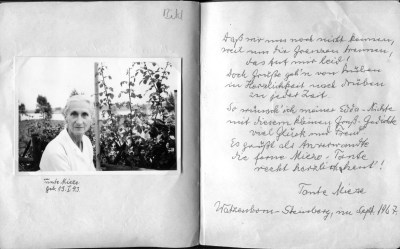 Daß wir uns noch nicht kennen,
weil uns die Grenzen trennen,
das tut mir leid!
Doch Grüße geh'n von drüben
in Herzlichkeit nach drüben
zu jeder Zeit.
So wünsch' ich meiner Nichte
mit diesem kleinen Gruß-Gedichte
viel Glück und Freud'
Es grüßt als Anverwandte
die ferne Mieze-Tante
recht herzlich heut!
Tante Mieze
im Sept. 1967.
Tante Mieze
geb. 13.